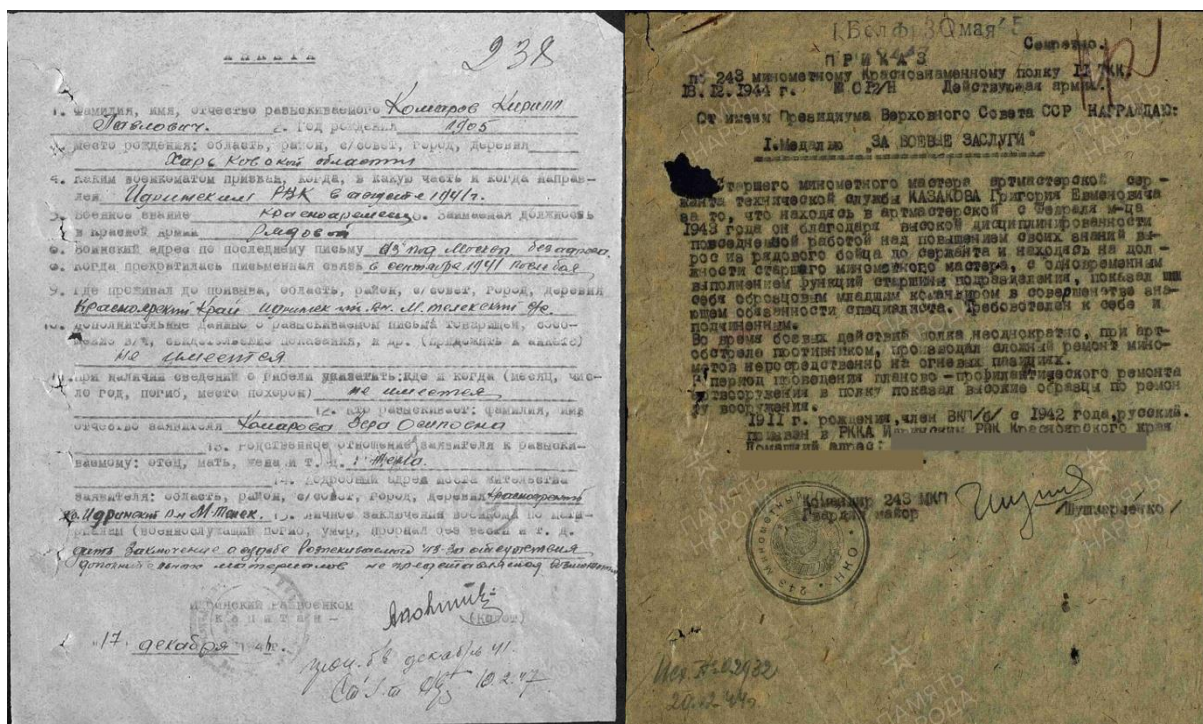 238
АНКЕТА
1. Фамилия, имя, отчество разыскиваемого Комаров Кирилл
Павлович. 2. Год рождения 1905
место рождения: область, район, с/совет, город, деревня
Харьковской области
4. Каким военкоматом призван, когда, в какую часть и когда направ-
лен Идринским РВК в августе 1941г.
Военное звание Красноармеец. Занимаемая должность
в Красной Армии Рядовой
6. Воинский адрес по последнему письму из под Москвы без адреса.
Когда прекратилась письменная связь в сентябре 1941
9. Где проживал до призыва, область, район, с/совет, город, деревня
Красноярский край М. телекский с/с.
10. Дополнительные данные о разыскиваемом письма товарищей, сооб-
в/ч, свидетельские показания, и др. (приложить к анкете)
не имеется
При наличии сведений о гибели указать: где и когда (месяц, чис-
ло год, погиб, место похорон) не имеется
12. Кто разыскивает: фамилия, имя
отчество заявителя Комарова Вера Осиповна
13. Родственное отношение заявителя к разыски-
ваемому: отец, мать, жена и т. д. Жена.
14. Подробный адрес места жительства
заявителя: область, район, с/совет, город, деревня Красноярский
Идринский р-н М-Телек. Личное заключение военкома по
(военнослужащий погиб, умер, пропал без вести и т. д.
дать заключение о судьбе Розискиваемого из-за отсутствия
материалов не представляется
Идринский Райвоенком
капитан -
17 декабря
декабрь 41
10.2.47
30 мая
Секретно.
ПРИКАЗ
по 243 минометному Краснознаменному полку
18.12.1944 г. № 012/Н Действующая армия.
От имени Президиума Верховного Совета ССР НАГРАЖДАЮ:
I. Медалью "ЗА БОЕВЫЕ ЗАСЛУГИ"
Старшего минометного мастера артмастерской сер-
жанта технической службы КАЗАКОВА Григория Евменовича
за то, что находясь в артмастерской с февраля м-ца
1943 года он благодаря высокой дисциплинированности
повседневной работой над повышением своих знаний вы-
рос из рядового бойца до сержанта и находясь на дол-
жности старшего минометного мастера, с одновременным
выполнением функций старшины подразделения, показал
себя образцовым младшим командиром в совершенстве зна-
ющем обязанности специалиста. Требователен к себе и
подчиненным.
Во время боевых действий полка неоднократно, при арт-
обстреле противником, производил сложный ремонт мино-
метов непосредственно на огневых позициях.
В период проведения планово-профилактического ремонта
артвооружения в полку показал высокие образцы по ремон
ту вооружения.
1911 г. рождения, член ВКП/б/ с 1942 года, русский.
призван в РККА Идринским РВК Красноярского края
Домашний адрес:
Командир 243 МКП
Гвардии майор
/Шушмарченко/
20.12.44г.
ПАМЯТЬ
НАРОДА